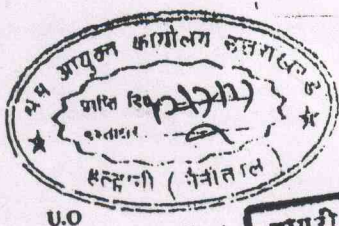 श्रम आयुक्त कार्यालय उत्तराखण्ड
प्राप्ति
हस्ताक्षर
हल्द्वानी (नैनीताल)
U.O